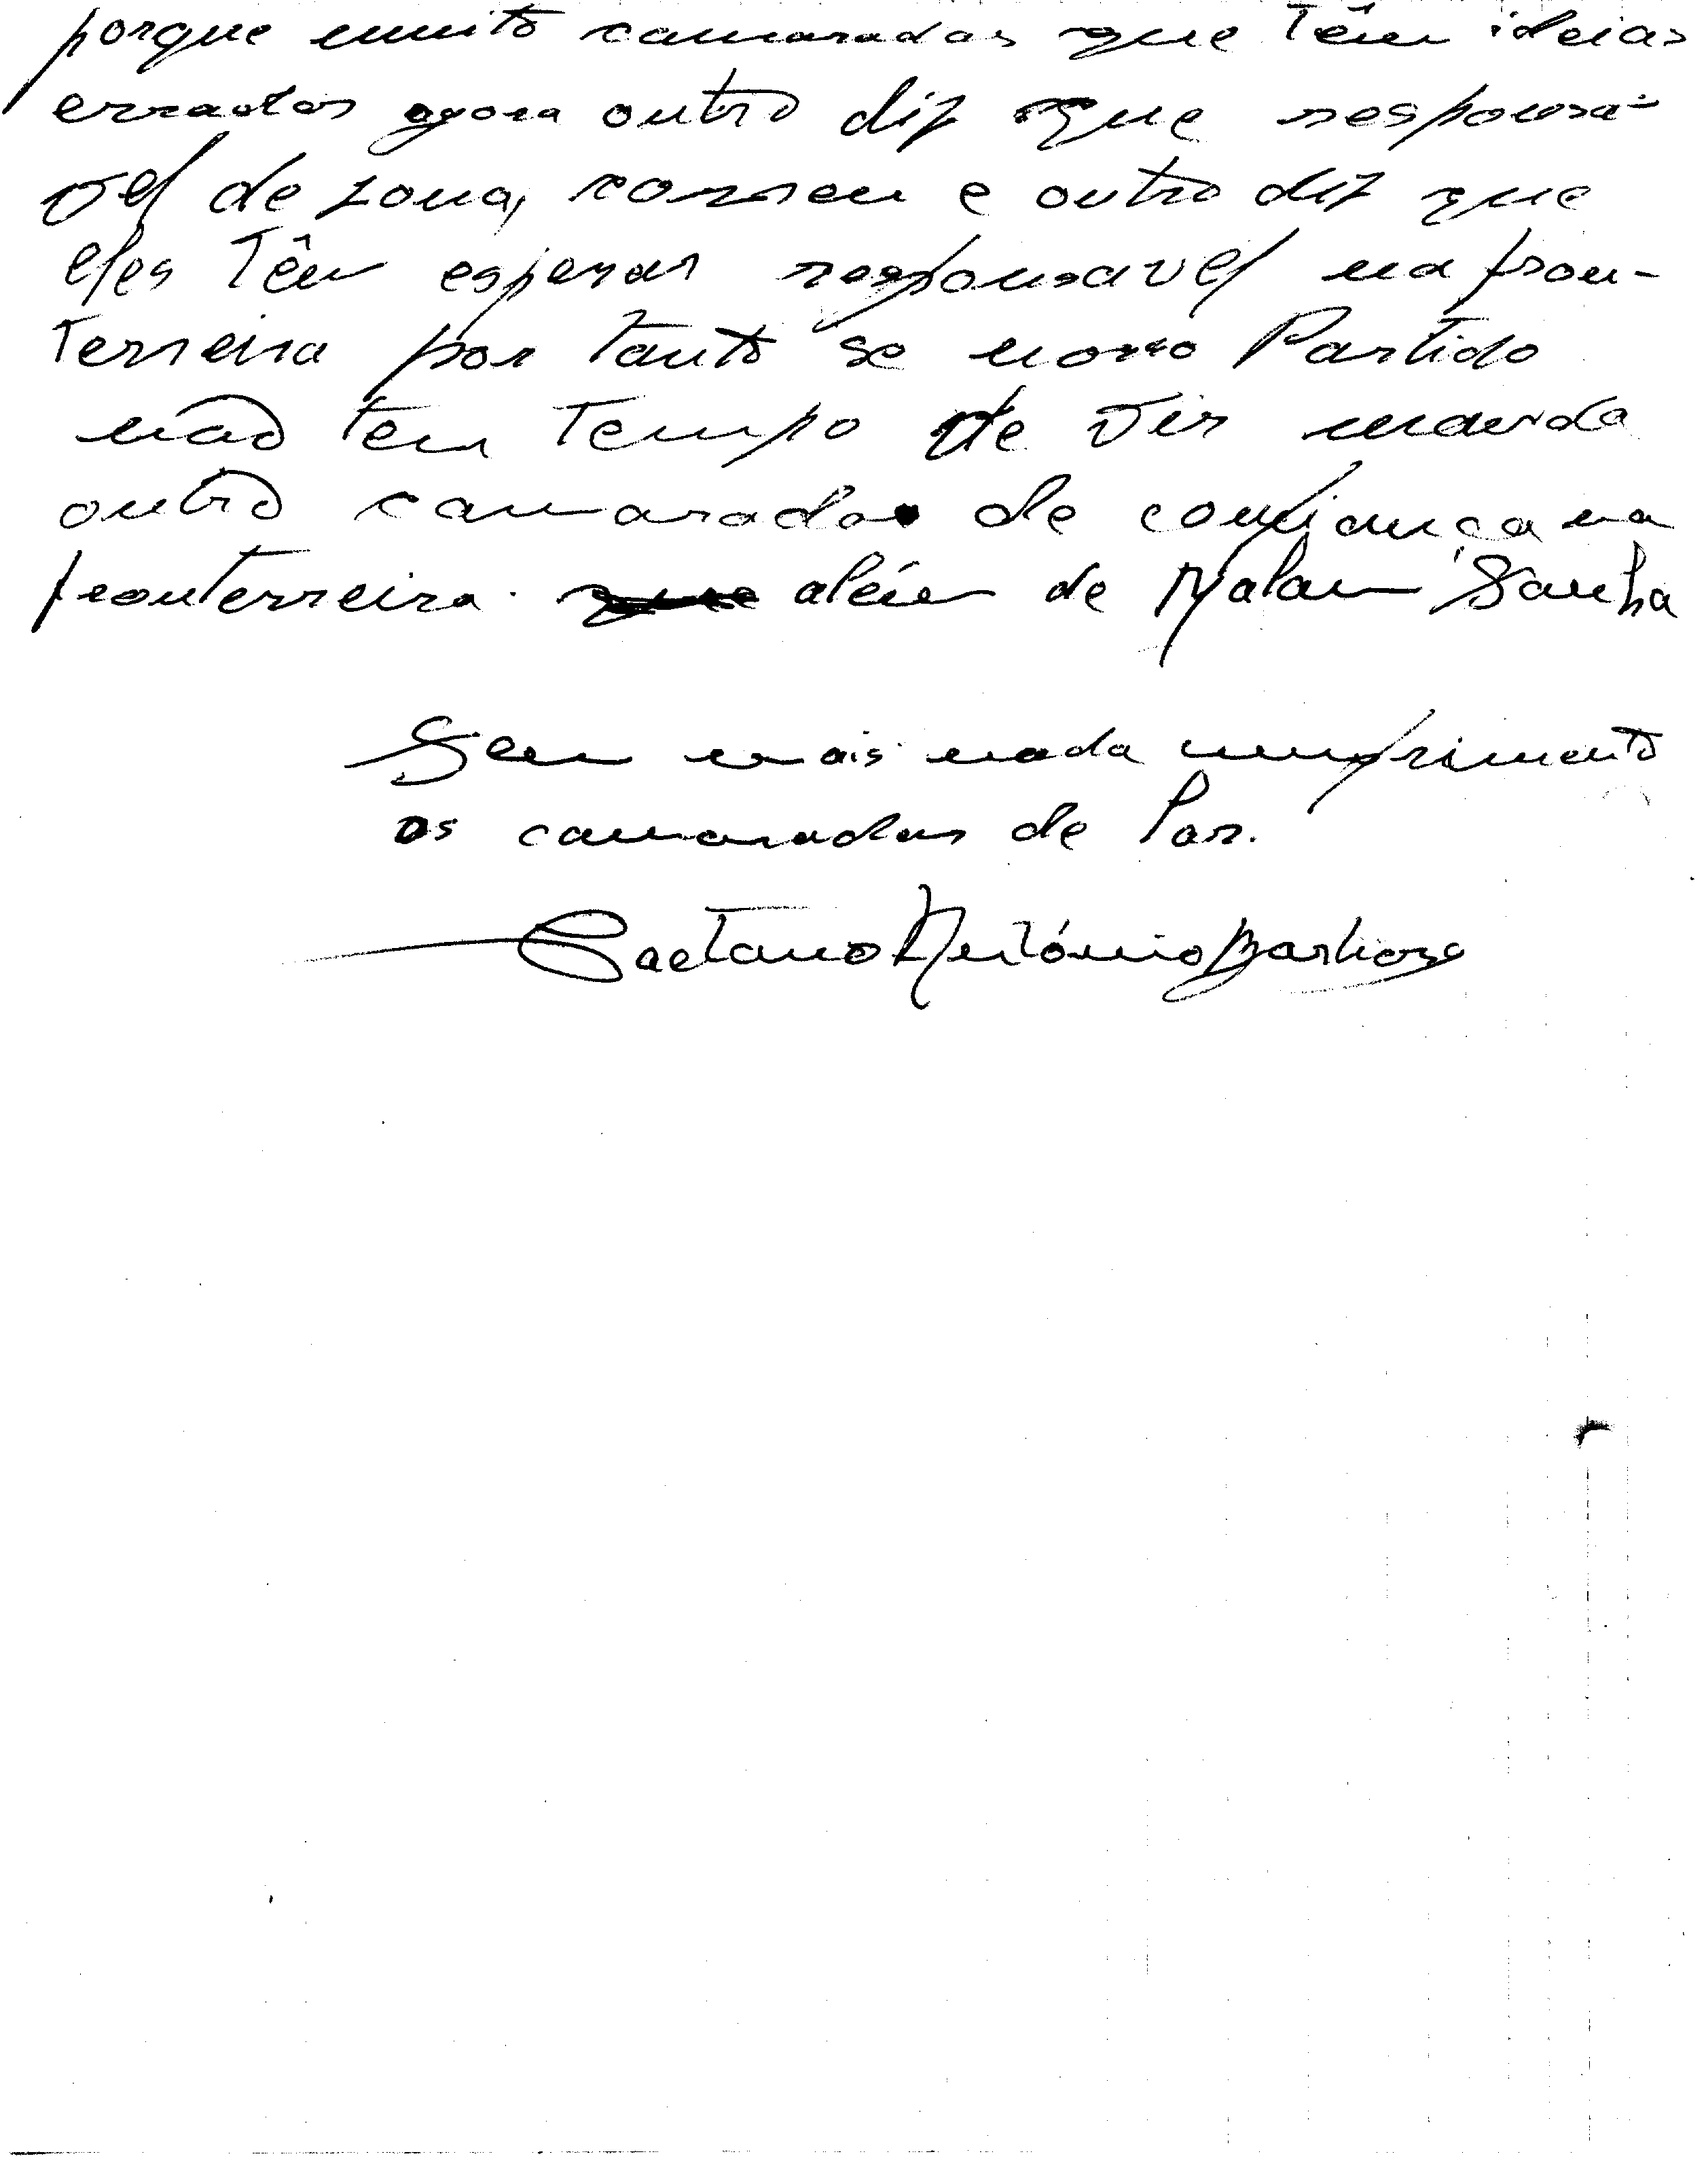 porque muito camaradas que têm ideias
erradas agora outro diz que responsá-
vel de zona, correu e outro diz que
eles têm esperar responsavel na fron-
terreira por tanto se nosso Partido
não tem tempo de vir manda
outro camarada de confiança na
fronterreira. além de Malam Sanha
Sem mais nada cumprimento
os camaradas de Par.
Caetano António Barbosa